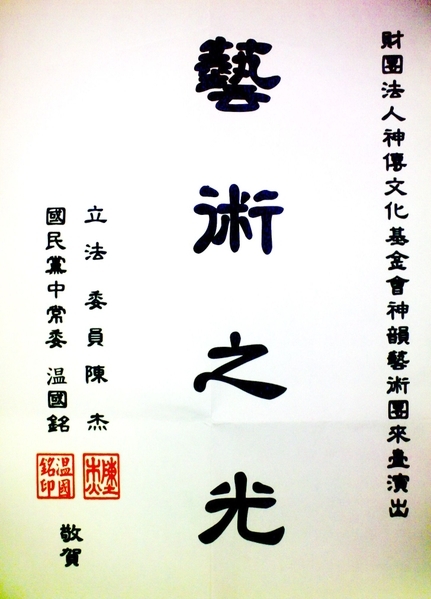 財團法人神傳文化基金會神韻藝術團來臺演出
藝術之光
立法委員陳杰
國民黨中常委溫國銘
陳杰
溫國銘印
敬賀